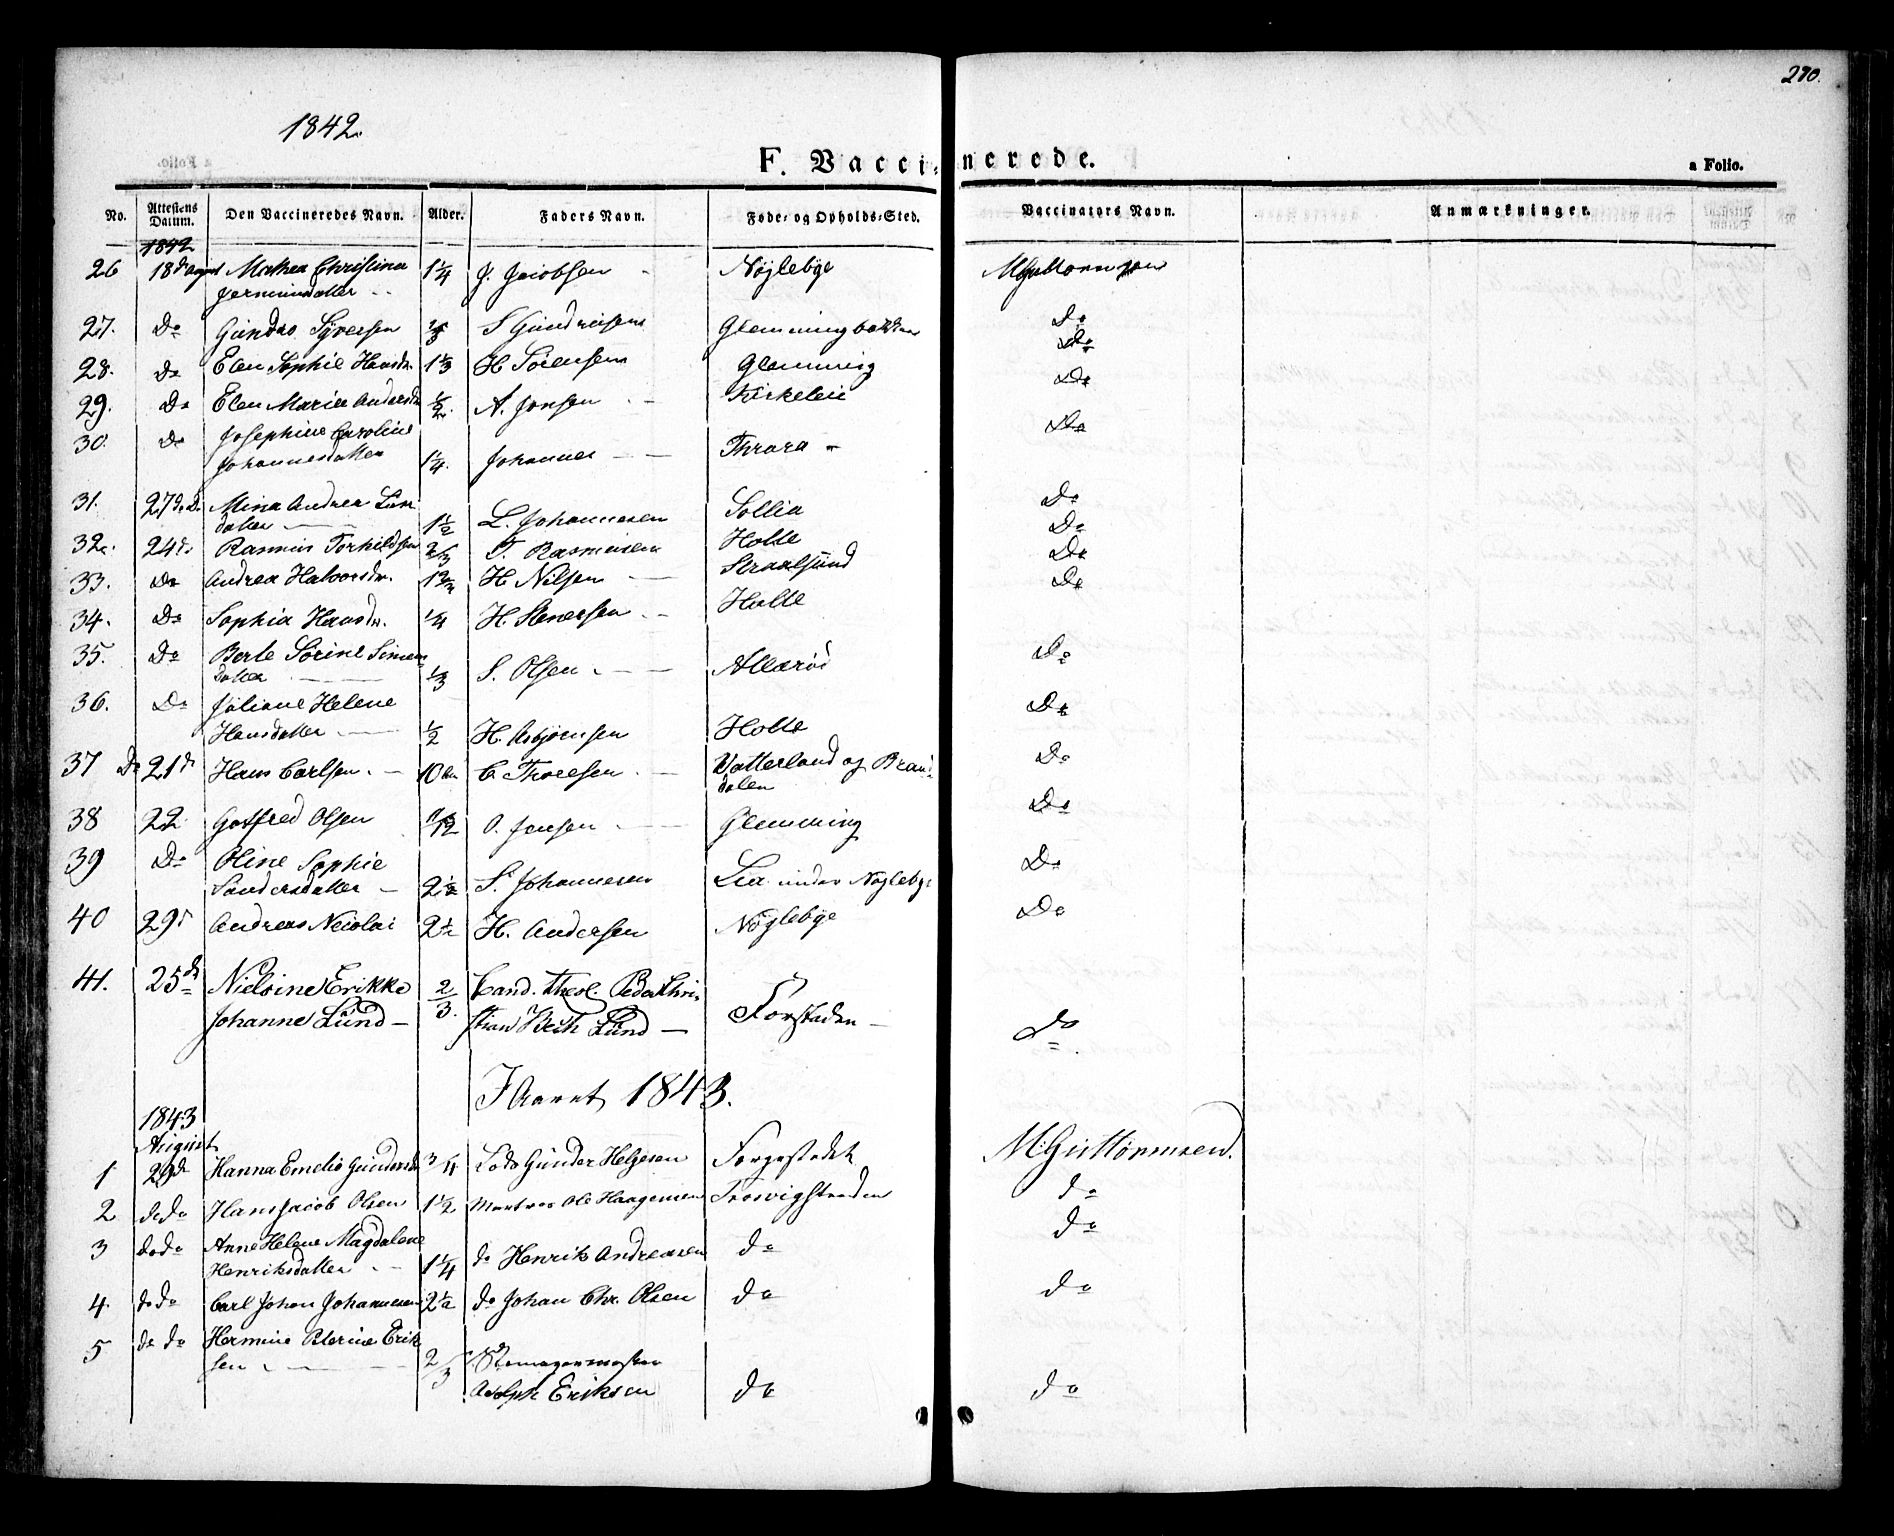 270.
1842.
F. Vaccinerede.
a Folio.
No. Attestens Datum. Den Vaccineredes Navn. Alder. Faders Navn. Føde- og Opholds-Sted. Vaccinators Navn. Anmærkninger.
1842
26 18d august Mathea Christina 1 1/4 J. Jacobsen - Nøjlebye
- -
27. Do Gundro Syversen S Gundrusens Glemmingbakken Do
28. Do Elen Sophie Hansdr. 1 1/3 H Sørensen Glemming Do
29. Do Elen Marie Andersdr 1/2. A. Jonsen - - Kirkeleie Do
30. Do Josephine Caroline Do
Johannesdatter 1 1/4. Johannes - - Thrara -
31. 27d. Do Mina Andrea Lars Do
datter - - 1 1/2 L. Johannesen Sollia
32. 24d. Rasmus Torkildsen 2/3 T. Rasmusen Holte Do
33. Do Andrea Halvorsdr. H Nilsen - Straalsund Do
34. Do Sophia Hansdr. 1/4 H. Stenersen - - Holte Do
35. Do Berte Sørine Simens Do
datter - 1/3 S. Olsen - - Allerød
36. Do Juliane Helene Do
Hansdatter - - 1/2 H. Asbjørnsen Holte
37 Do 21d Hans Carlsen - - 10 C. Thoresen - Vatterland og Brand- Do
dalen
38 22 Gotfred Olsen 11/12 O. Jensen - - Glemming Do
39 Do Oline Sophie Do
Sandersdatter - 2 1/2 S. Johannesen Lia under Nøglebye
40 29d Andreas Nicolai 2 1/2 H. Andersen Nøglebye Do
41. 25de Nielsine Erikke 2/3. Cand. theol. Peder Chri-
Johanne Lund - stian Lund - Forstaden - Do
I Aaret 1843.
1843
August
1 29de Hanna Emelie Gundersdr 3/4 Lods Gunder Helgesen Forgestedet M: Guttormsen.
2 dodo Hans Jacob Olsen 1 1/2 Matros Ole Haagensen Trosvigstranden do
3 dodo Anne Helene Magdalene do
Henriksdatter - - 1 1/4 do Henrik Andreasen do
4. dodo Carl Johan Johannesen 2 1/2 do Johan Chr. Olsen do do
5 do do Hermine Peterine Erik
sen - - 2/3
Adolph Eriksen do do